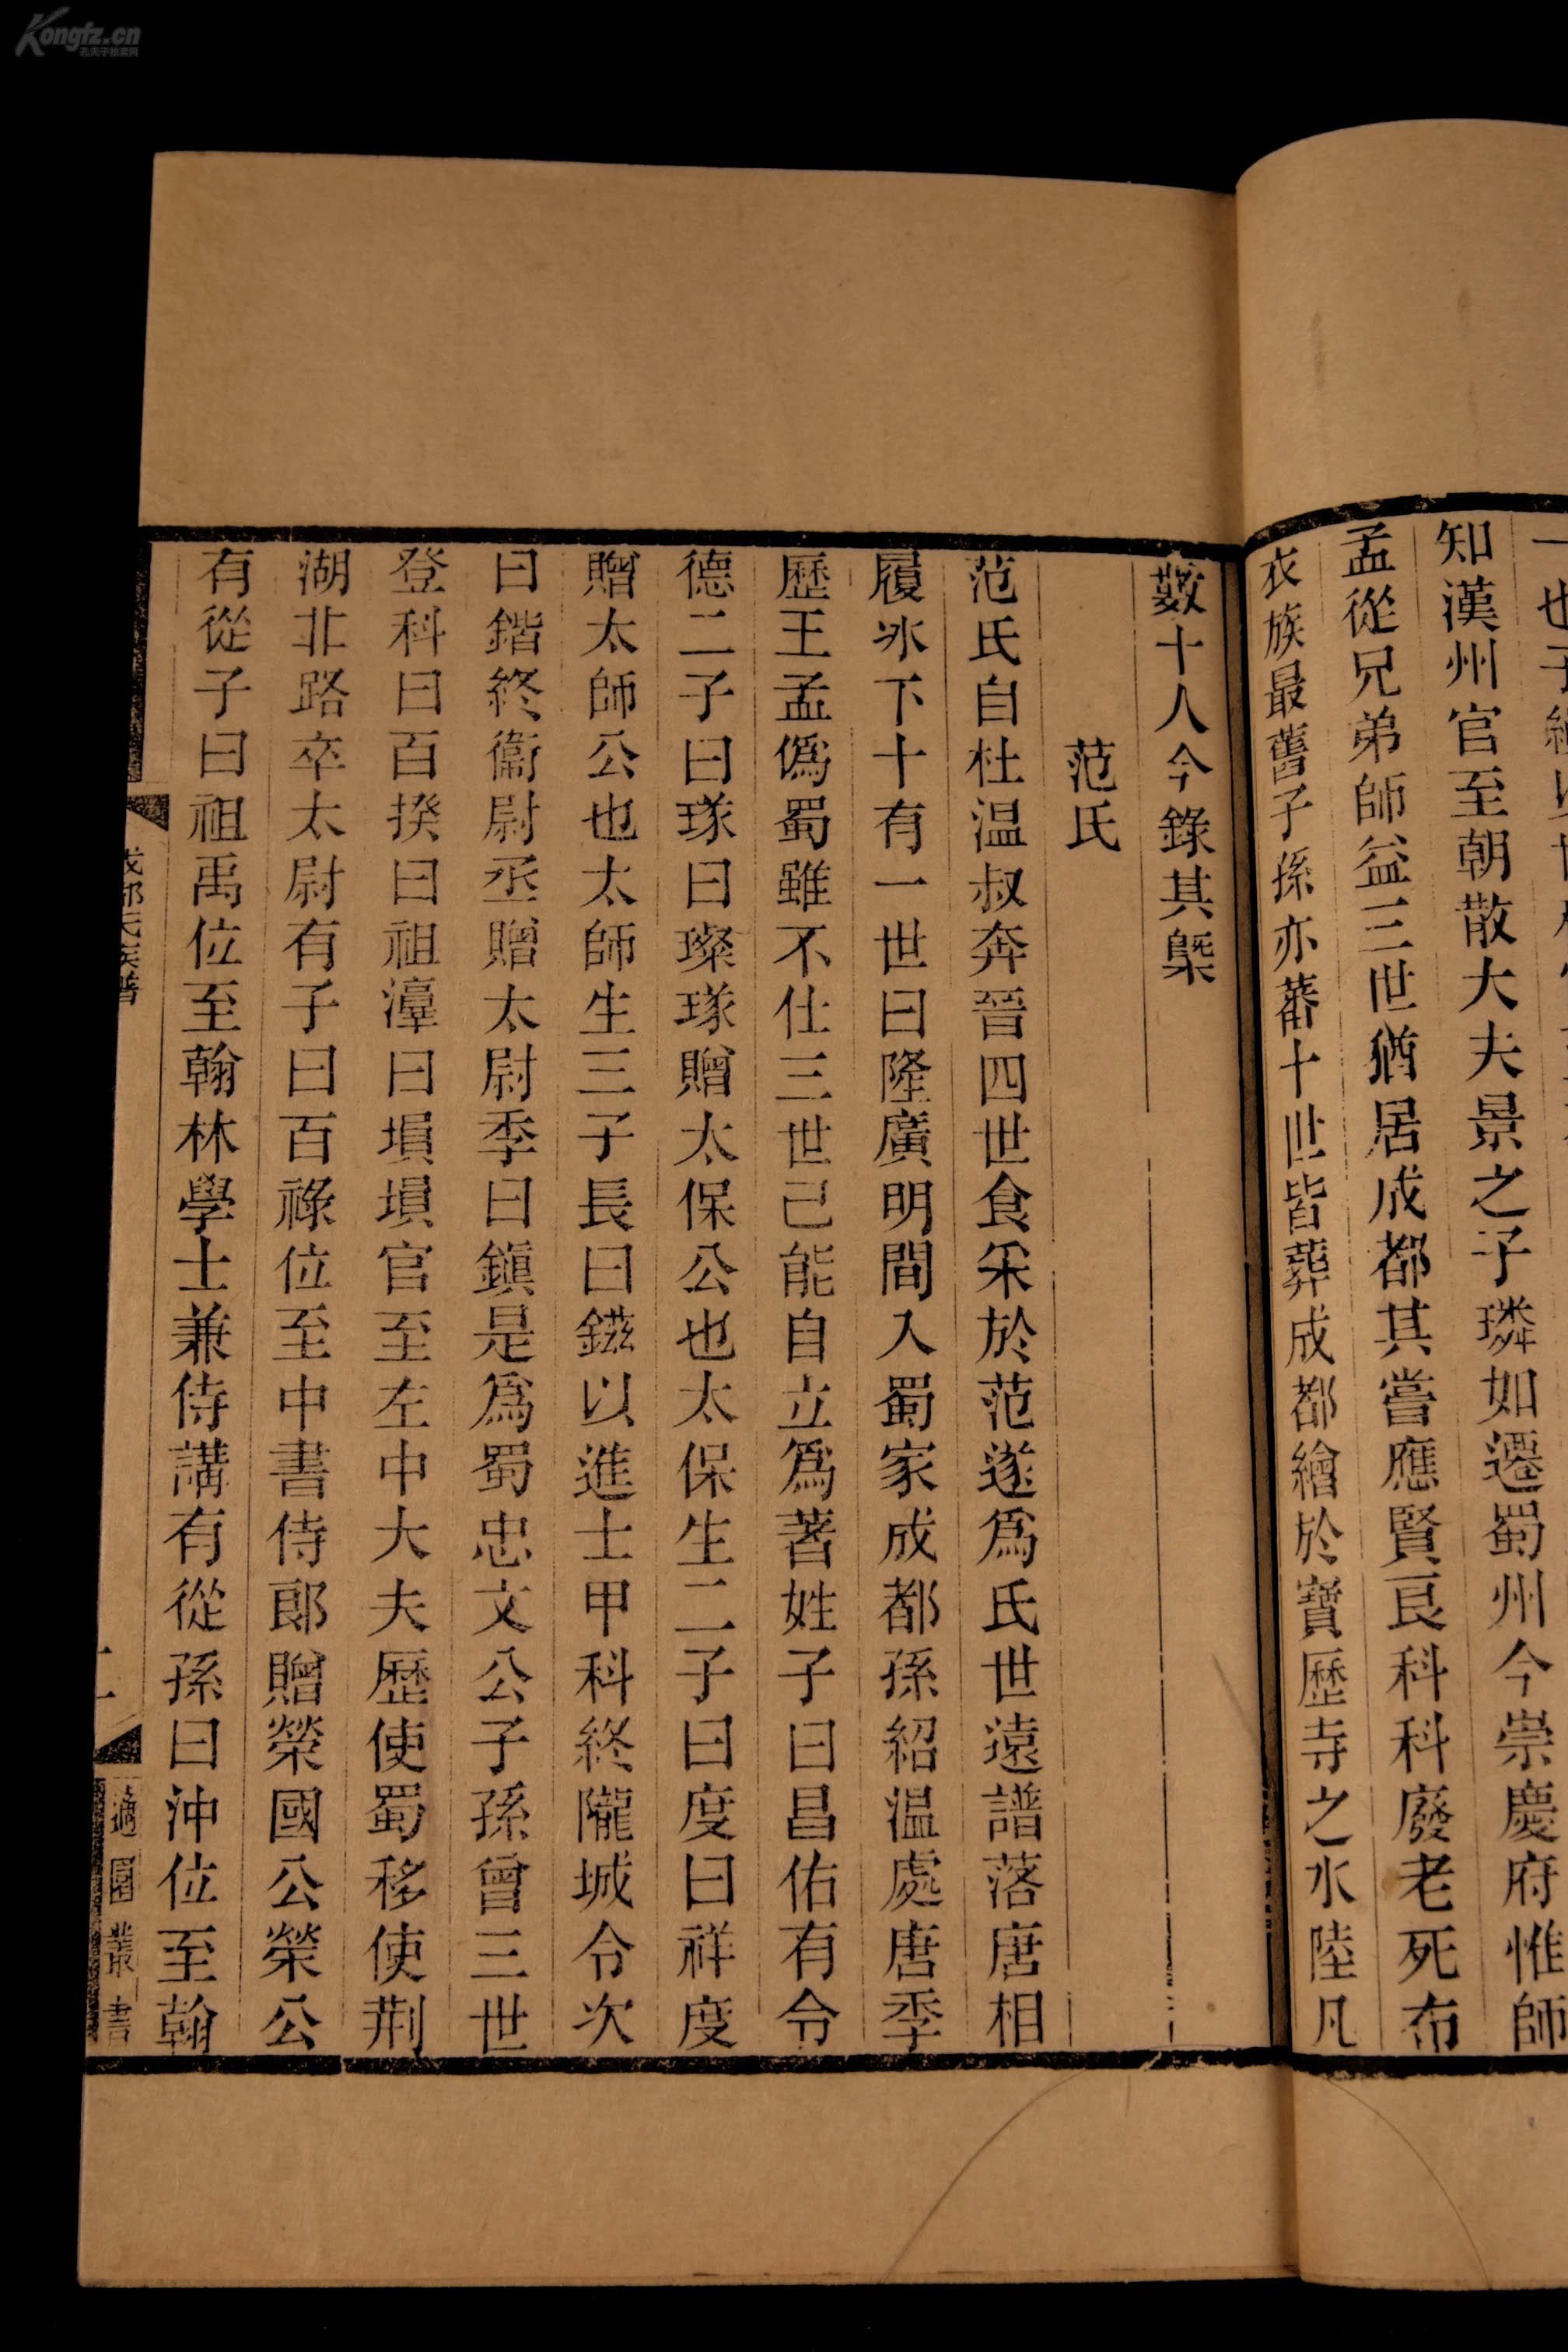 知漢州官至朝散大夫景之子璘如遷蜀州今崇慶府惟師
孟從兄弟師益三世猶居成都其嘗應賢良科科廢老死布
衣族最舊子孫亦蕃十世皆葬成都繪於寶歷寺之水陸凡
數十人今錄其槩
范氏
范氏自杜温叔奔晉四世食采於范遂爲氏世遠譜落唐相
履冰下十有一世曰隆廣明間入蜀家成都孫紹温處唐季
歷王孟僞蜀雖不仕三世已能自立爲著姓子曰昌佑有令
德二子曰璲曰璨璲贈太保公也太保生二子曰度曰祥度
贈太師公也太師生三子長曰鎡以進士甲科終隴城令次
曰鍇終衞尉丞贈太尉季曰鎭是爲蜀忠文公子孫曾三世
登科曰百揆曰祖澐曰塤塤官至左中大夫歷使蜀移使荆
湖北路卒太尉有子曰百祿位至中書侍郎贈榮國公榮公
有從子曰祖禹位至翰林學士兼侍講有從孫曰沖位至翰
成都氏族譜
二
適園叢書
Kongfz.cn
孔夫子旧书网